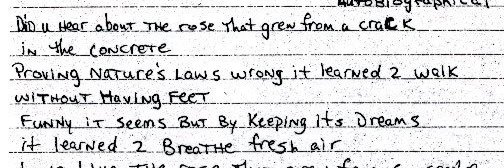 AUTOBIOGRAPHICAL
DiD u Hear about THE rose That grew from a craCK
in the CONCRETE
Proving NaTure's Laws wrong it learned 2 walk
WITHOUT HaviNg FeeT
FUNNY iT Seems BuT By Keeping iTs Dreams
it learned 2 BreaTHe fresh air